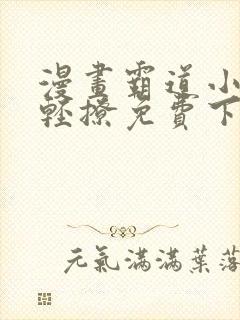 漫畫霸道小
輕撩免費下
元氣滿滿葉落